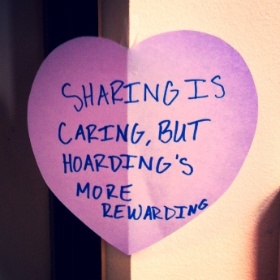 SHARING IS
CARING, BUT
HOARDING'S
MORE
REWARDING